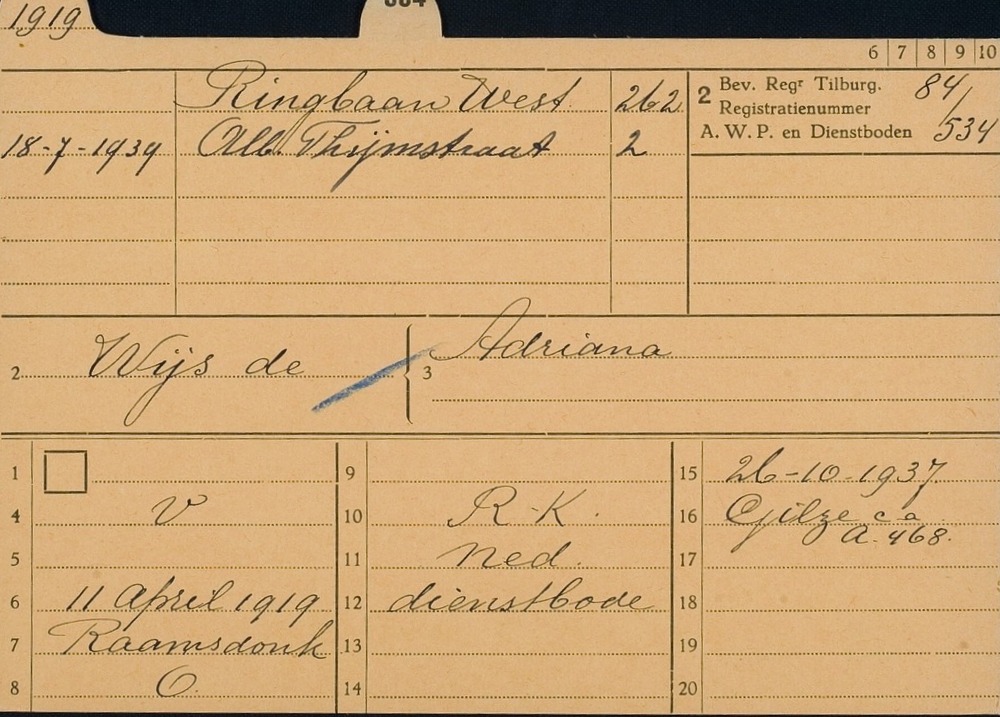 1919
6 7 8 9 10
Ringbaan West. 262
18-7-1939 Alb. Thijmstraat 2
2 Bev. Regr Tilburg. 84/534
Registratienummer
A. W. P. en Dienstboden
2 Wijs de
3 Adriana
1
4 V
5
6 11 April 1919
7 Raamsdonk
8 O.
9
10 R-K.
11 Ned.
12 dienstbode
13
14
15 26-10-1937
16 Gilze c.a.
A. 468.
17
18
19
20